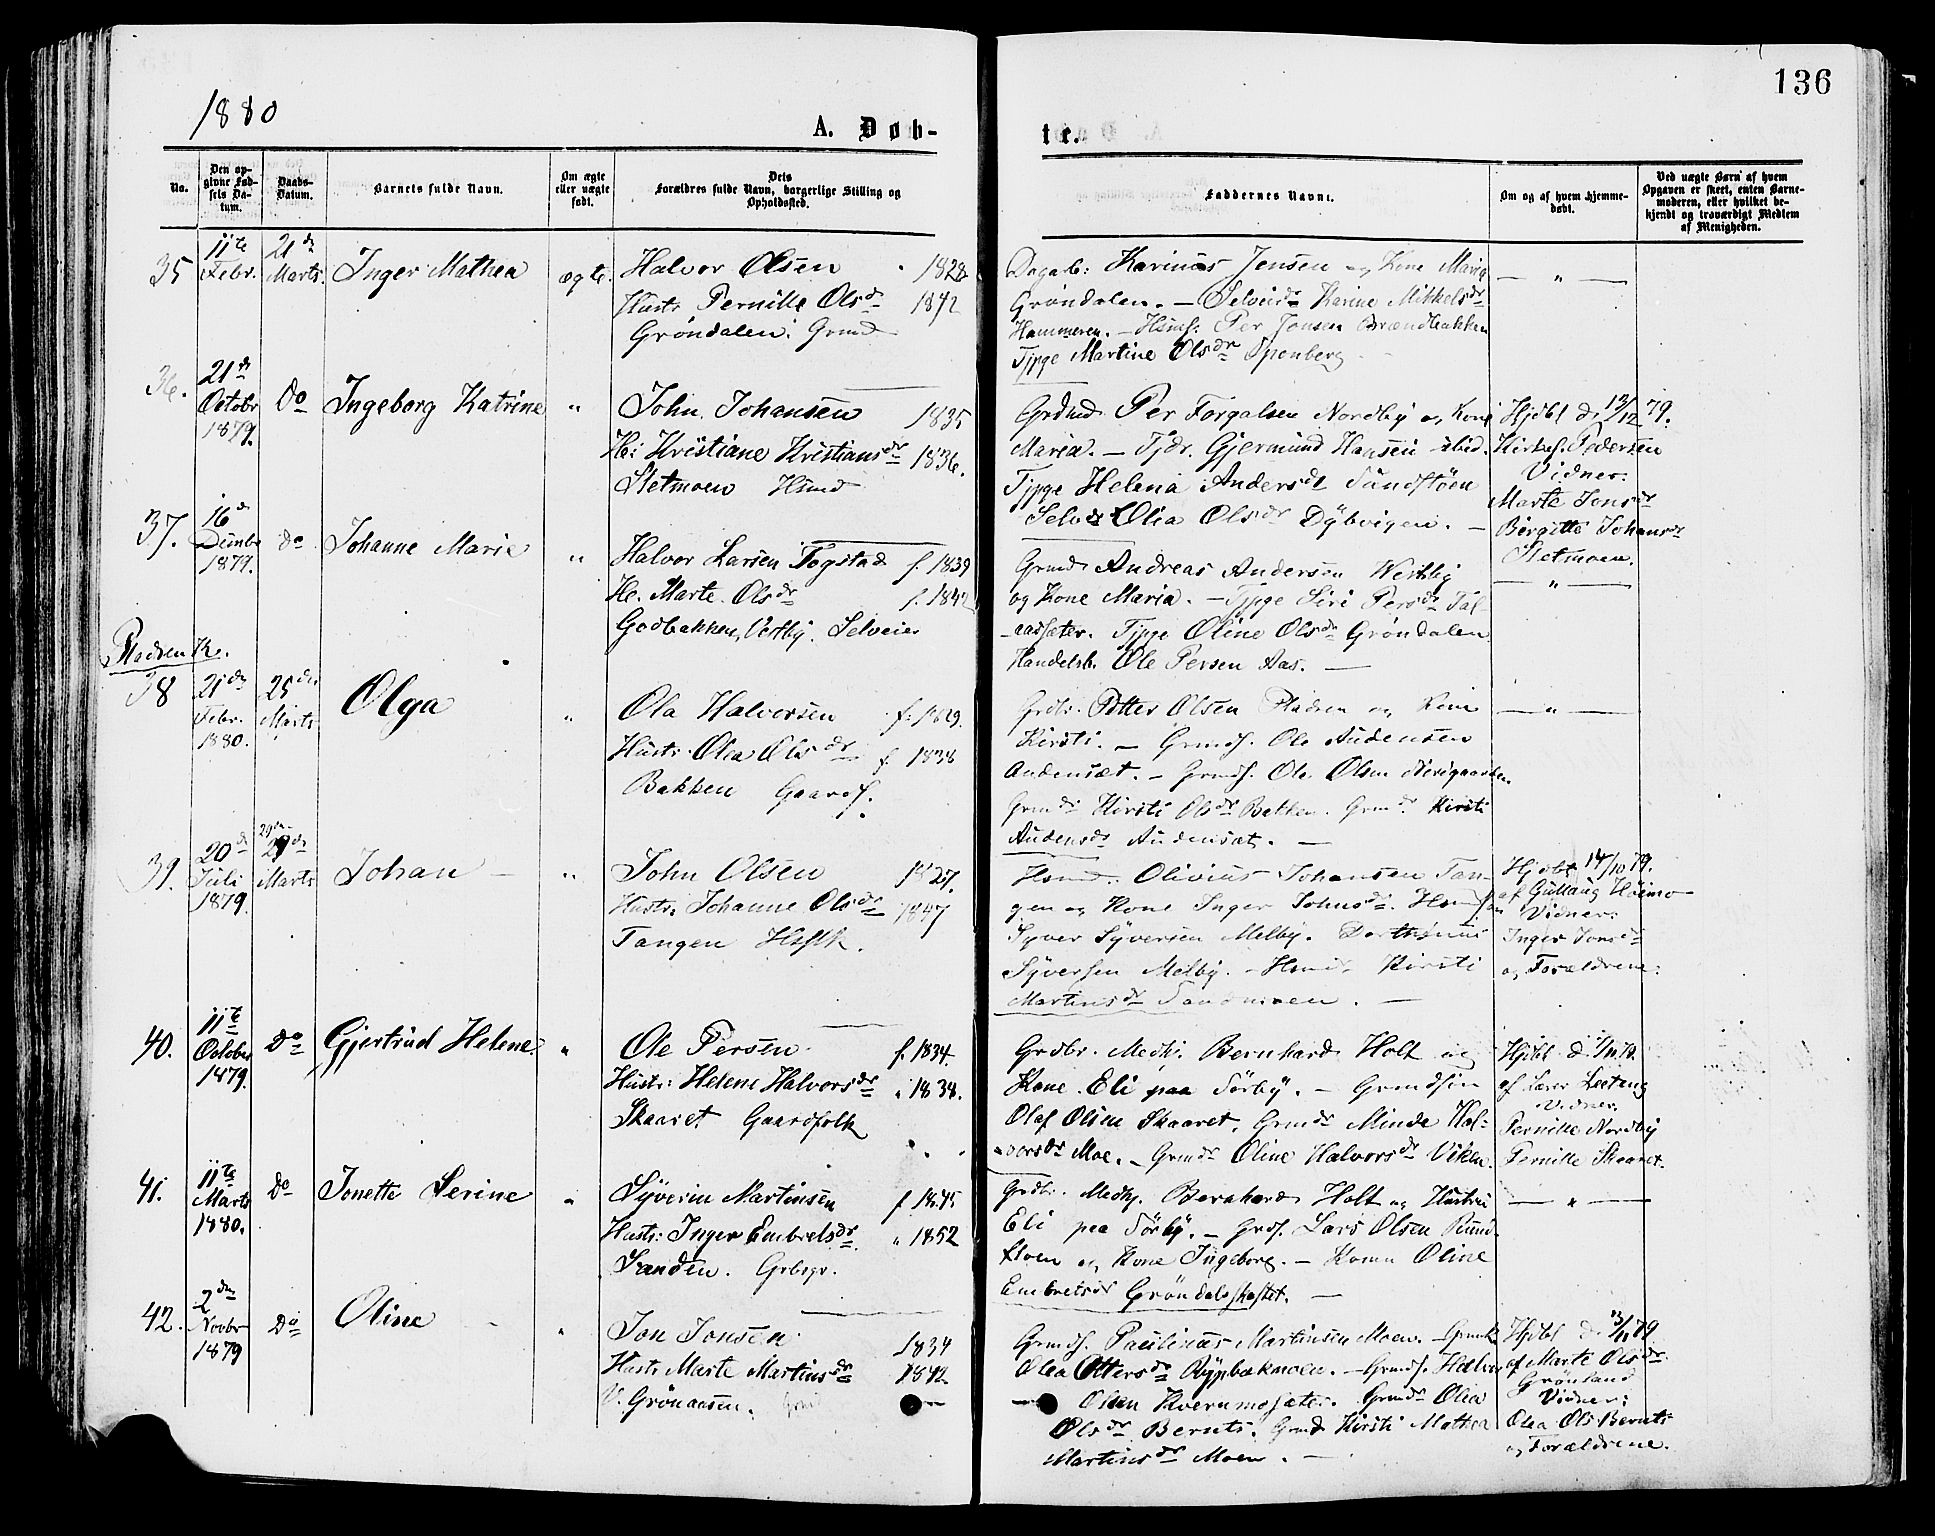 136
1880
A. Døb-
te.
No.
Den op-
givne Fød-
sels Da-
tum.
Daabs-
Datum.
Barnets fulde Navn.
Om ægte
eller uægte
født.
Dets
Forældres fulde Navn, borgerlige Stilling og
Opholdssted.
Faddernes Navne.
Om og af hvem hjemme-
døbt.
Ved uægte Børn af hvem
Opgaven er skeet, enten Barne-
moderen, eller hvilket be-
kjendt og troværdigt Medlem
af Menigheden.
35
11te
Febr.
21de
Marts.
Inger Mathea
ægte.
Halvor Olsen 1828
Hustr. Pernille Olsdr 1842
Grøndalen. Grmd
Dagarb: Karinus Jensen og Kone Maria
Grøndalen. — Selveidr Karine Mikkelsdr
Hammeren. — Hsmf: Per Jonsen Brændbakken
Tjpge Martine Olsdr Sponberg
— " —
36.
21de
Octobr
1879.
Do
Ingeborg Katrine
"
John Johansen 1835
H: Kristiane Kristiansdr 1836.
Sletmoen Hsmd
Grdmd Per Torgalsen Nordby og Kone
Maria. — Tjdr. Gjermund Hansen ibid.
Tjpge Helena Andersdr Sundstøen
Selvdr Olia Olsdr Dybvigen. —
Hjdbt d. 13/12 79.
Kirkes. Pedersen
Vidner:
Marte Jonsdr
Birgitte Johansdr
Sletmoen.
37.
16de
Dcmbr
1879.
do
Johanne Marie
"
Halvor Larsen Togstad f. 1839
H. Marte Olsdr f. 1842
Godbakken, Vestby. Selveier
Grmd Andreas Andersen Vestby
og Kone Maria. — Tjpge Siri Persdr Tal-
-aassæter. Tjpge Oline Olsdr Grøndalen
Handelsb. Ole Persen Aas. —
— " —
Pladsen K.
38
21de
Febr.
1880.
25de
Marts
Olga
"
Ola Halvorsen f. 1829.
Hustr. Olea Olsdr f. 1838
Bakken Gaardf.
Grdbr. Petter Olsen Pladsen og Kone
Kirsti. — Grmdf. Ole Audensen
Audensæt. — Grmdf. Ole Olsen Nerigaarden
Grmdr Kirsti Olsdr Bakken. Grmdr Kirsti
Audensdr Audensæt. —
— " —
39.
20de
Juli
1879.
29de
29de
Marts
Johan
"
John Olsen 1827.
Hustr. Johanne Olsdr 1847
Tangen Hsflk.
Hsmd. Olivius Johansen Tan-
gen og Kone Inger Johnsdr. Hsm
Syver Syversen Melby. Dorthinus
Syversen Melby. — Hsmdr Kirsti
Martinsdr Sandmoen. —
Hjdbt 14/10 79.
af Gullaug Holmo
Vidner:
Inger Jonsdr
og Forældrene:
40.
11te
October
1879.
Do
Gjertrud Helene
"
Ole Persen f. 1834.
Hustr: Helene Halvorsdr " 1838.
Skaaret Gaardfolk
Grdbr. Medhj. Bernhard Holt og
Kone Eli paa Sørby. — Grmdsøn
Olaf Olsen Skaaret. Grmdr Minda Hal-
vorsdr Moe. — Grmdr Oline Halvorsdr Viken.
Hjdbt d.
af Lærer Leetang
Vidner.
Pernille Nordby
Pernille Skaaret
41.
11te
Marts
1880.
Do
Jonette Serine
"
Syverin Martinsen f 1845
Hustr: Inger Embretsdr " 1852
Sanden. Grbsgr.
Grdbr. Medhj. Bernhard Holt og Hustru
Eli paa Sørby. — Grdf. Lars Olsen Rund-
floen og Kone Ingeborg. — Kona Oline
Embretsdr Grøndalsskaftet. —
— " —
42.
2den
Novbr
1879
Do
Oline
"
Jon Jonsen 1834
Hustr Marte Martinsdr 1842
V. Grønaasen.
Grmdf. Paulinus Martinsen Moen. Grmdr
Olea Ottersdr Rypbækmoen. — Grmdf. Halvor
— Olsen Kvernmosæter. Grmdr Olea
Olsdr Bernts. Grmd Kirsti Mathea
Martinsdr Moen. —
Hjdbt d. 13/11 79
af Marte Olsdr
Grønland
Vidner:
Olea Ols Bernts
og Forældrene.